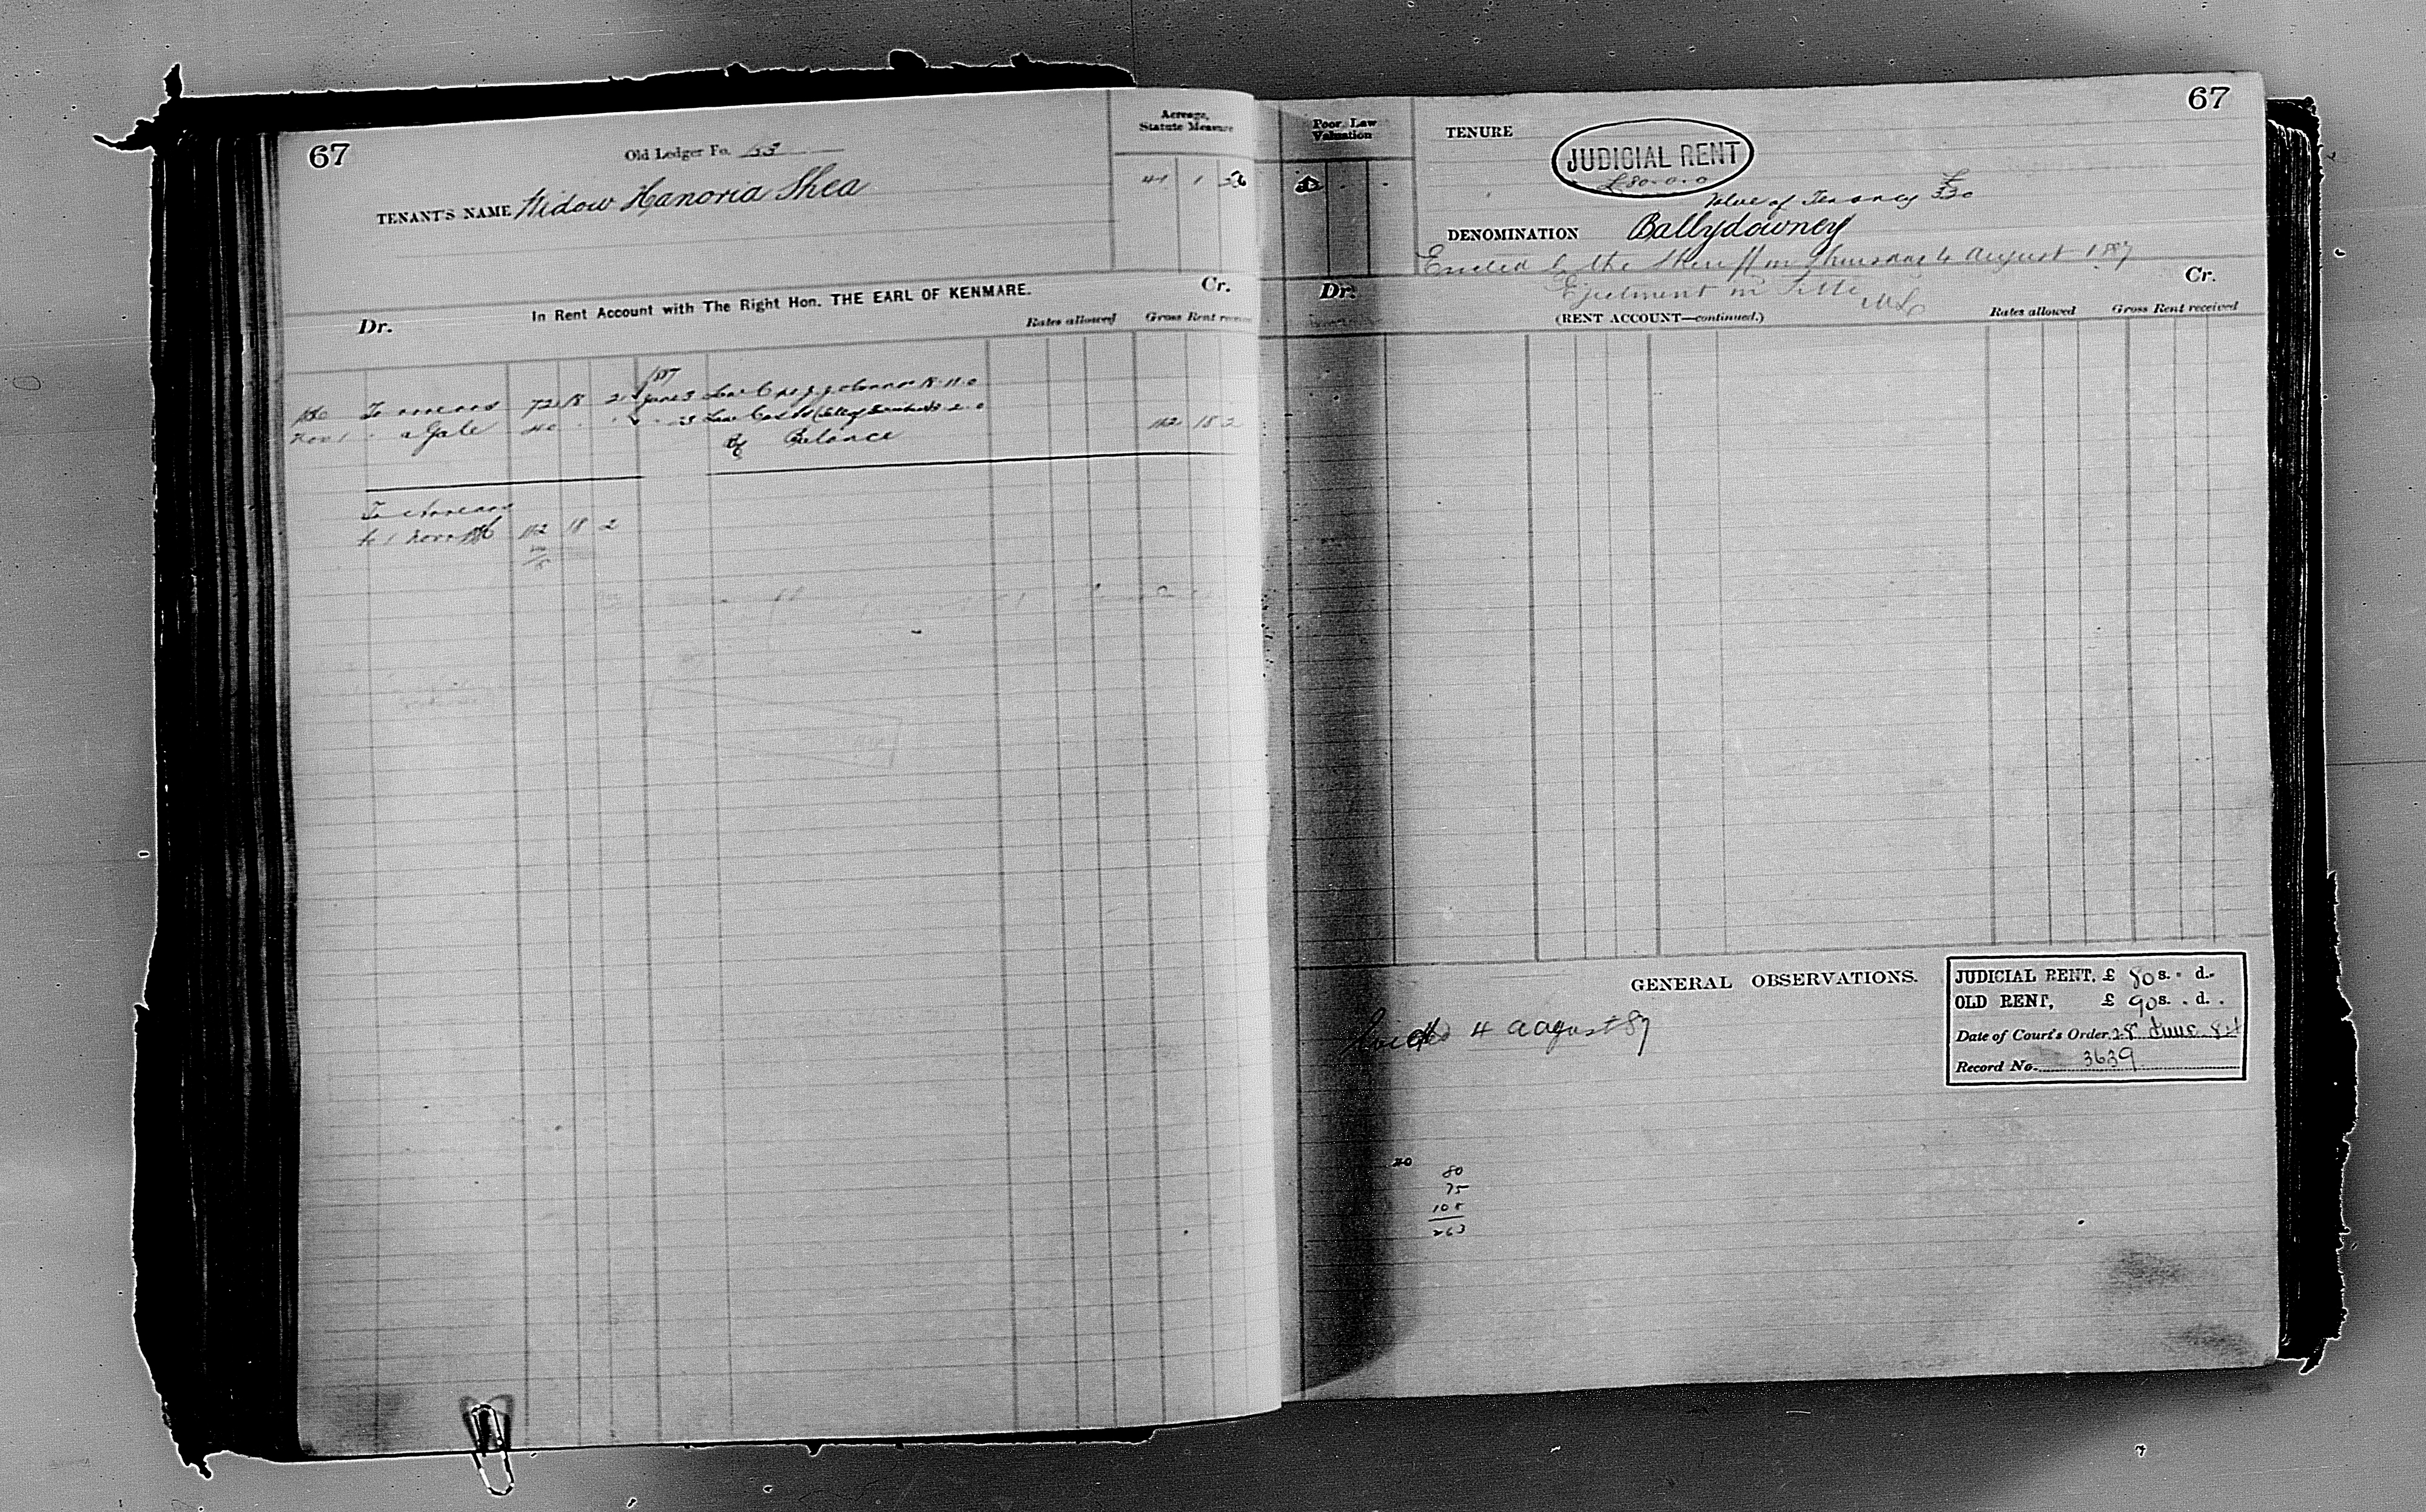 67
Old Ledger Fo. 53
TENANT'S NAME Widow Hanoria Shea
Acreage,
Statute Measure
41 1 36
In Rent Account with The Right Hon. THE EARL OF KENMARE.
Dr.
Cr.
Rates allowed
Gross Rent
1887
To arrears 72 18 2 June 3 Law Costs 18.11.0
Nov 1 " a Gale 40 . .
By Balance 112 18 2
To Arrears
to 1 Nov 86 112 18 2
67
Poor Law
Valuation
TENURE
JUDICIAL RENT
£80.0.0
Value of Tenancy £330
DENOMINATION Ballydowney
Evicted by the Sheriff on Thursday 4 August 1887
Ejectment on Title
Dr.
Cr.
(RENT ACCOUNT—continued.)
Rates allowed
Gross Rent received
GENERAL OBSERVATIONS.
JUDICIAL RENT, £ 80 s. - d. -
OLD RENT, £ 90 s. . d. .
Date of Court's Order 28 June 84
Record No. 3639
Evicted 4 August 87
40
80
75
108
263